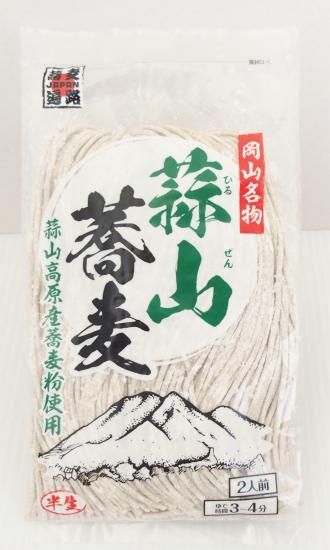 蕎麦
JAPAN
遍路
岡山名物
蒜山
ひる
ぜん
蕎麦
蒜山高原産蕎麦粉使用
2人前
ゆで
時間
3~4分
半生